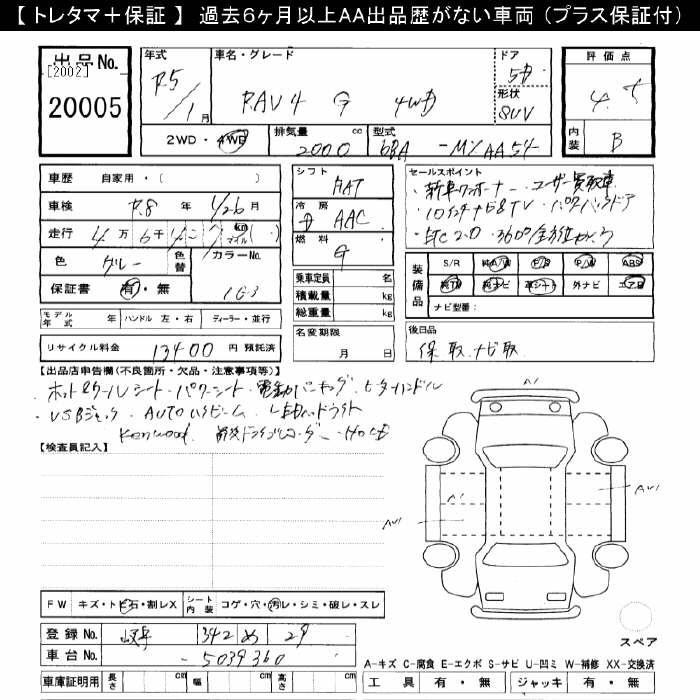 【 トレタマ＋保証 】 過去6ヶ月以上AA出品歴がない車両（プラス保証付）
出品No.
[2002]
20005
年式 R5/1月
車名・グレード
RAV4 G 4WD
ドア 5D
形状 SUV
評価点
4.5
内装 B
2WD・4WD
排気量 2000 cc
型式 6BA-MXAA54
車歴 自家用・( )
車検 R8年 1/26月
走行 4万6千 km マイル ( )
色 グレー 色替 カラーNo.
保証書 有・無 1G3
シフト FAT
冷房 AAC
燃料 G
乗車定員 名
積載量 kg
総重量 kg
セールスポイント
・新車ワンオーナー ・ユーザー買取車
・10インチナビ&TV ・パワーバックドア
・ETC2.0 ・360°全方位カメラ
装備品 S/R 純A/W P/S P/W ABS
純TV 純ナビ 革シート 外ナビ エアB
ナビ型番：
モデル年式 年 ハンドル 左・右 ディーラー・並行
名変期限 月 日
後日品
保 取 ナビ取
リサイクル料金 13400 円 預託済
【出品店申告欄(不良箇所・欠品・注意事項等)】
・ホット&クールシート ・パワーシート ・電動パーキング ・ヒーターハンドル
・USBジャック ・AUTOハイビーム ・LEDヘッドライト
Kenwood 前後ドライブレコーダー
【検査員記入】
A1
A1
AW1
AW1
FW キズ・トビ石・割レX シート内装 コゲ・穴・汚レ・シミ・破レ・スレ
登録No. 岐阜 342 め 29
車台No. -5039360
車庫証明用 長さ cm 幅 cm 高さ cm
スペア
A-キズ C-腐食 E-エクボ S-サビ U-凹ミ W-補修 XX-交換済
工具 有・無 ジャッキ 有・無